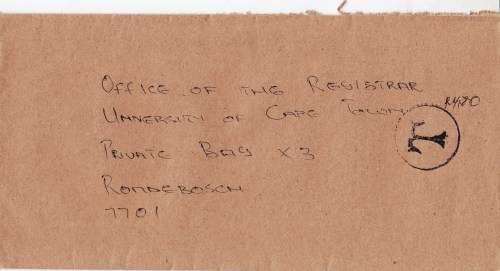 OFFICE OF THE REGISTRAR
UNIVERSITY OF CAPE TOWN
PRIVATE BAG X3
RONDEBOSCH
7701
T